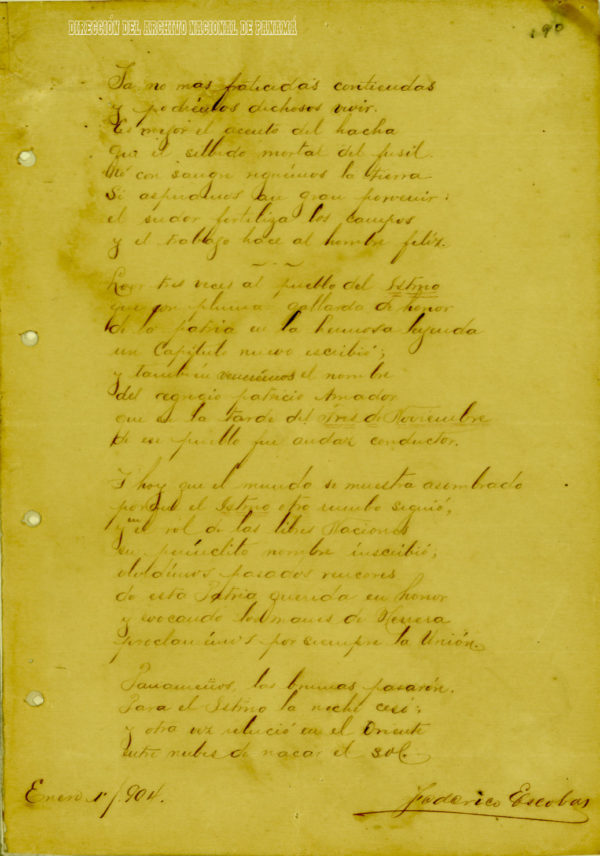 DIRECCIÓN DEL ARCHIVO NACIONAL DE PANAMÁ
190
Ya no mas fraticidas contiendas
y podremos dichosos vivir.
Es mejor el acento del hacha
que el silbido mortal del fusil.
No con sangre reguemos la tierra
Si aspiramos a un gran porvenir:
el sudor fertiliza los campos
y el trabajo hace al hombre feliz.
Loor tres veces al pueblo del Istmo
que con pluma gallarda de honor
de la patria en la hermosa leyenda
un Capitulo nuevo escribió;
y tambien veneremos el nombre
del egregio patricio Amador
que en la tarde del tres de Noviembre
de ese pueblo fué audaz conductor.
Y hoy que el mundo se muestra asombrado
porque el Istmo otro rumbo siguió,
y en el rol de las libres Naciones
su perínclito nombre inscribió;
olvidemos pasados rencores
de esta Patria querida en honor
y evocando los manes de Herrera
proclamemos por siempre la Unión.
Panameños, las brumas pasarón.
Para el Istmo la noche cesó;
y otra vez relució en el Oriente
entre nubes de nacar el sol.
Enero 1/904.
Federico Escobar